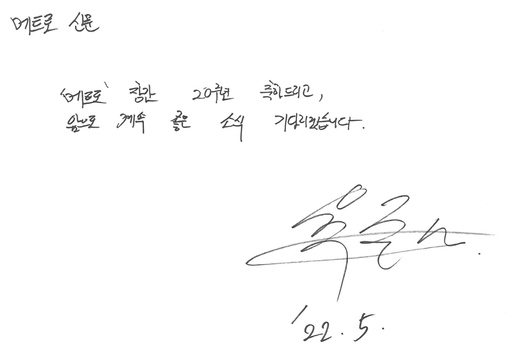 메트로 신문
'메트로' 창간 20주년 축하드리고,
앞으로 계속 좋은 소식 기다리겠습니다.
'22. 5.